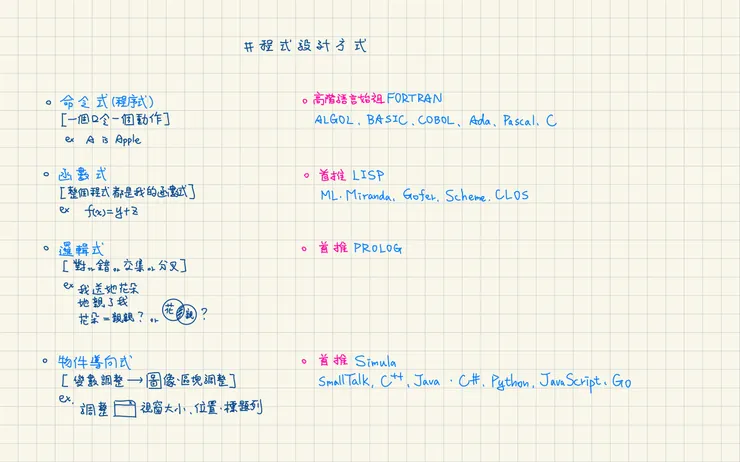 #程式設計方式
命令式(程序式)
[一個口令一個動作]
ex A is Apple
高階語言始祖 FORTRAN
ALGOL、BASIC、COBOL、Ada、Pascal、C
函數式
[整個程式都是我的函數式]
ex f(x)=y+z
首推 LISP
ML、Miranda、Gofer、Scheme、CLOS
邏輯式
[對 or 錯 or 交集 or 分叉]
ex 我送她花朵
她親了我
花朵=親親? or 花 親 ?
首推 PROLOG
物件導向式
[變數調整→圖像、區塊調整]
ex. 調整 視窗大小、位置、標題列
首推 Simula
SmallTalk、C++、Java、C#、Python、JavaScript、Go